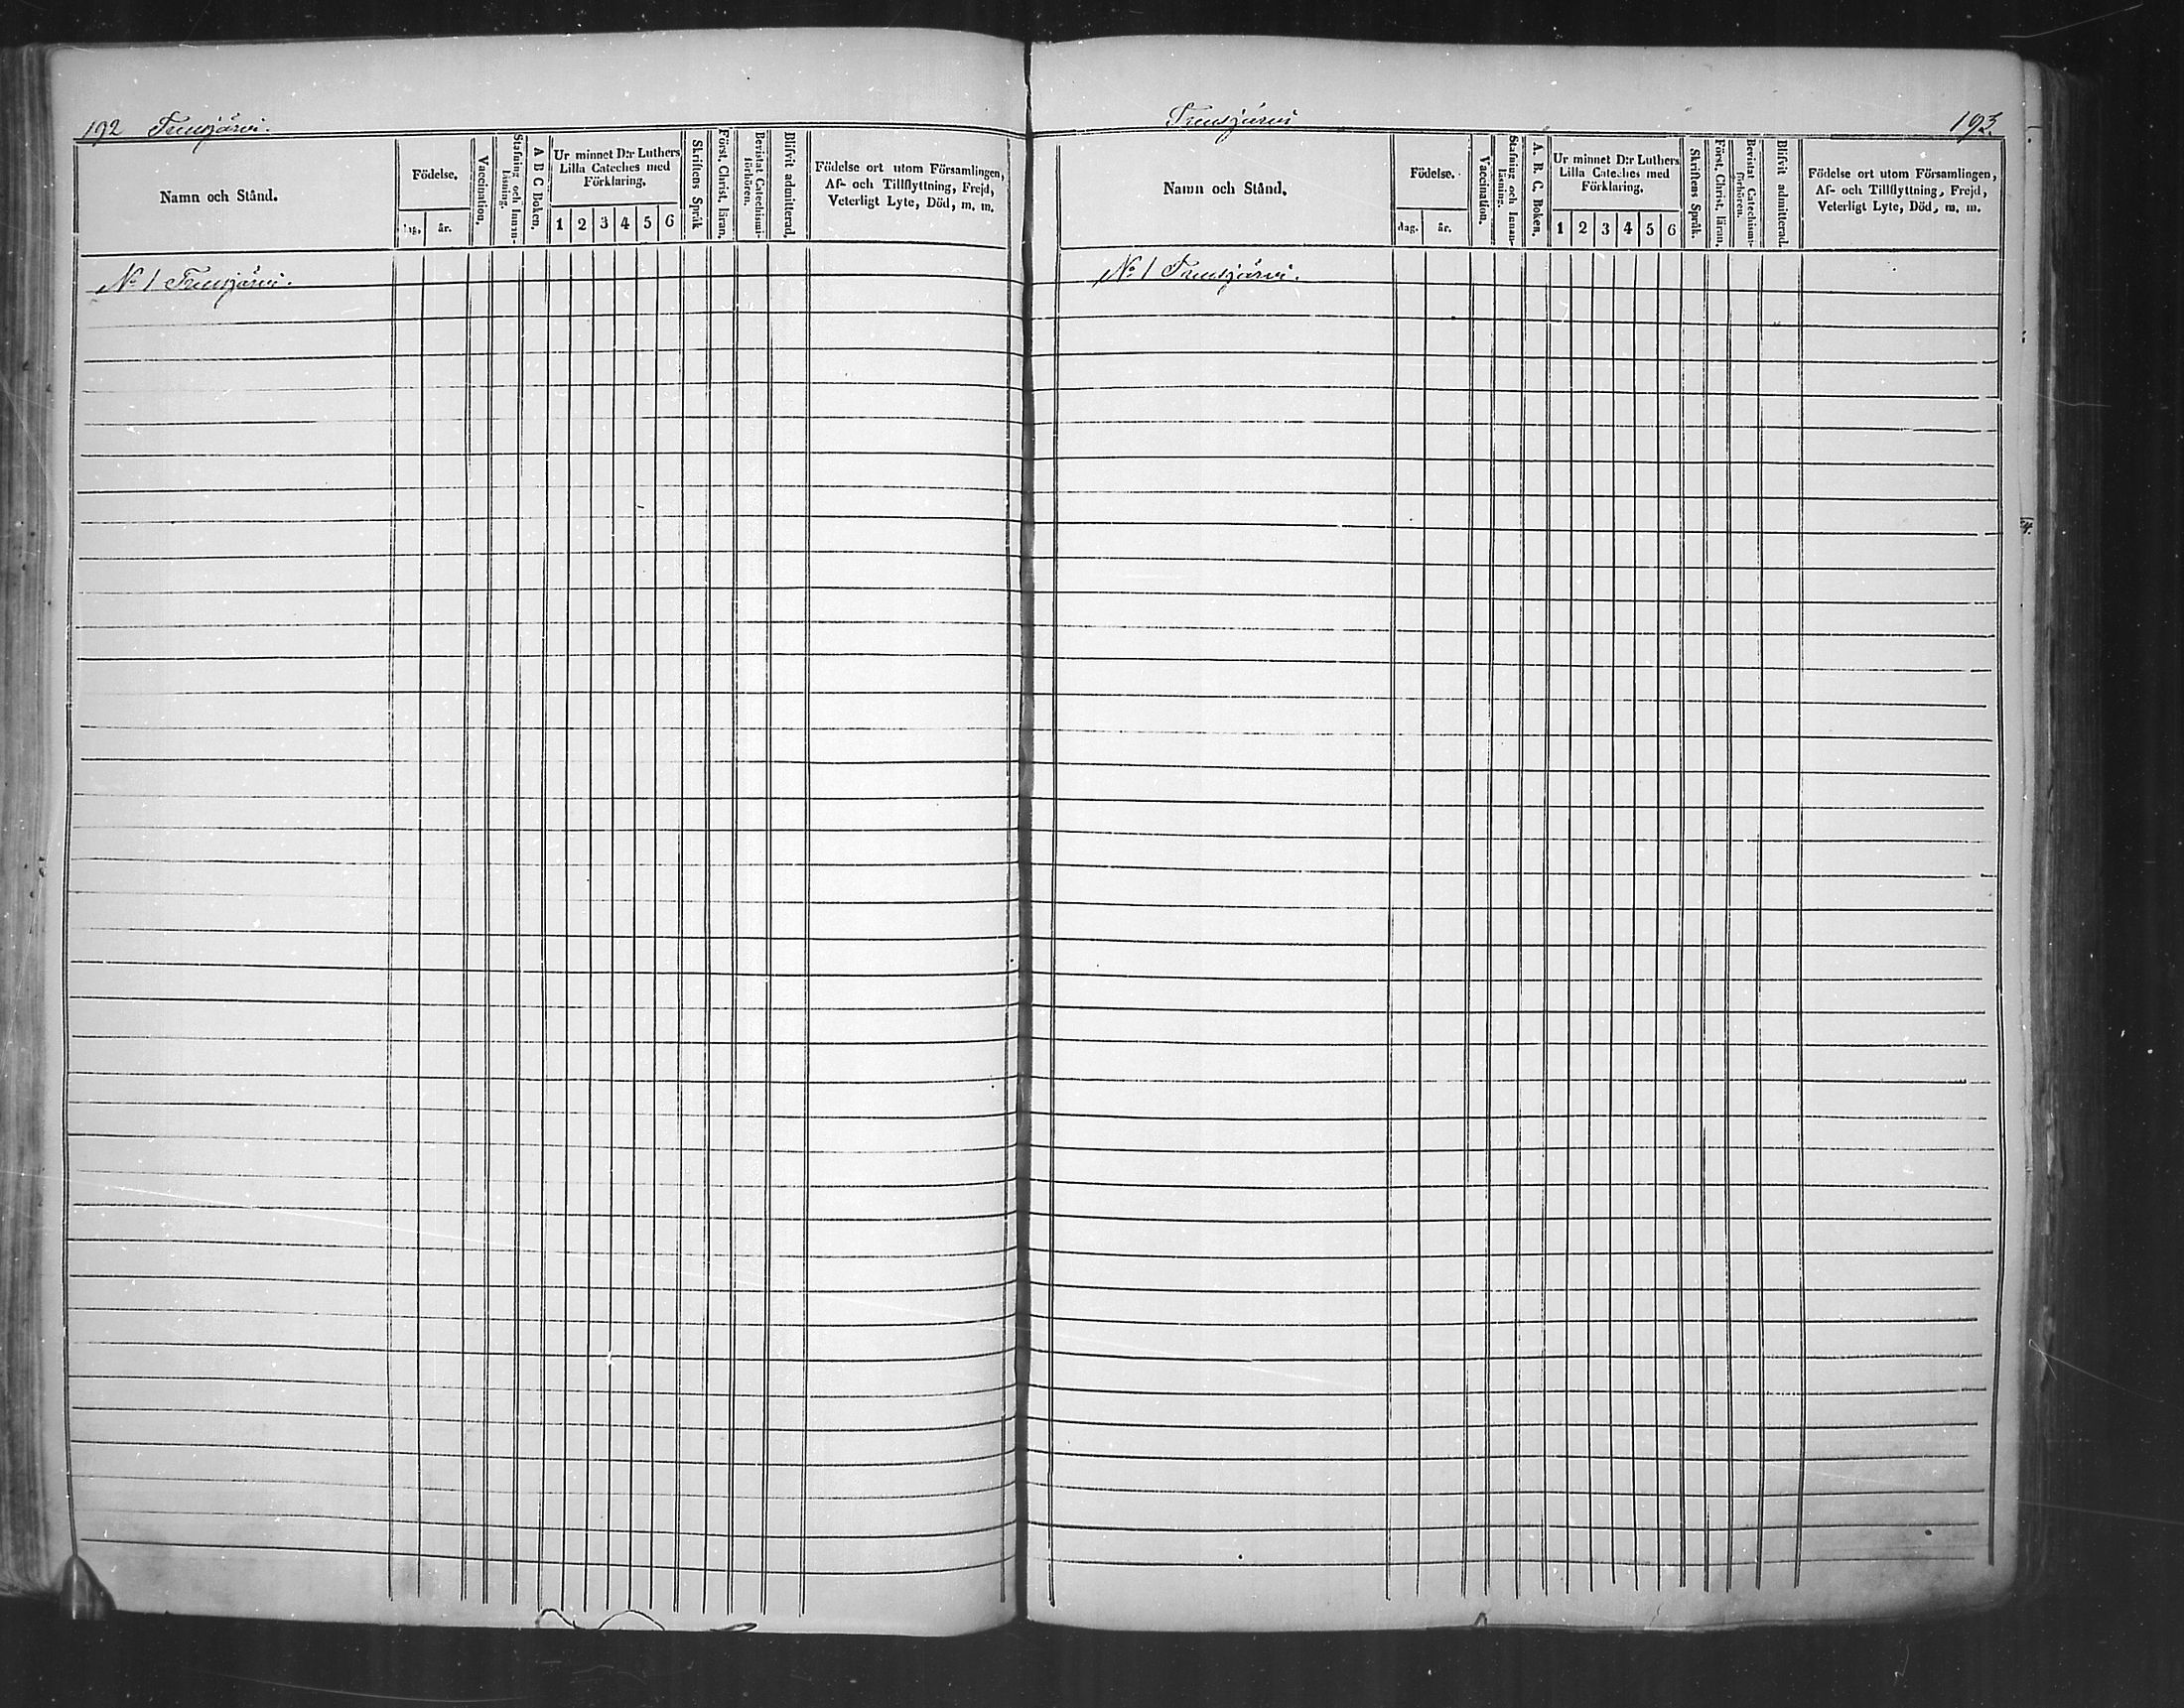 192
Namn och Stånd.
Födelse.
dag.
år.
Vaccination.
Stafning och Innan-
läsning.
A B C Boken.
Ur minnet D:r Luthers
Lilla Cateches med
Förklaring.
1 2 3 4 5 6
Skriftens Språk
Först. Christ. läran.
Bevistat Catechismi-
förhören.
Blifvit admitterad.
Födelse ort utom Församlingen,
Af- och Tillflyttning, Frejd,
Veterligt Lyte, Död, m. m.
No 1
193.
Namn och Stånd.
Födelse.
dag.
år.
Vaccination.
Stafning och Innan-
läsning.
A. B. C. Boken.
Ur minnet D:r Luthers
Lilla Cateches med
Förklaring.
1 2 3 4 5 6
Skriftens Språk.
Först. Christ. läran.
Bevistat Catechismi-
förhören.
Blifvit admitterad.
Födelse ort utom Församlingen,
Af- och Tillflyttning, Frejd,
Veterligt Lyte, Död, m. m.
No 1